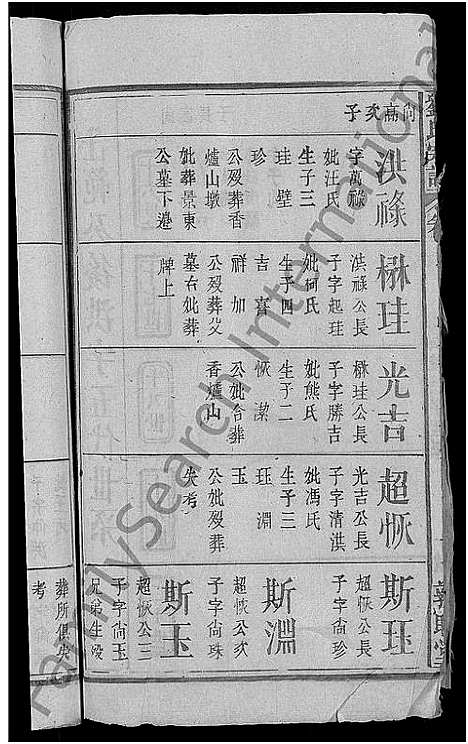 尙高次子
洪祿
字萬祿
妣汪氏
生子三
珪 璧
珍
公歿葬香
爐山墩
妣葬景東
公墓下邉
楙珪
洪祿公長
子字起珪
妣柯氏
生子四
吉 喜
祥 加
公歿葬父
墓右妣葬
牌上
光吉
楙珪公長
子字勝吉
妣熊氏
生子二
恢 潔
公妣合葬
香爐山
超恢
光吉公長
子字清洪
妣馮氏
生子三
珏 淵
玉
公妣歿葬
失考
斯珏
超恢公長
子字尙珍
斯淵
超恢公次
子字尙珠
斯玉
超恢公三
子字尙玉
兄弟生歿
葬所俱失
考
FamilySearch International